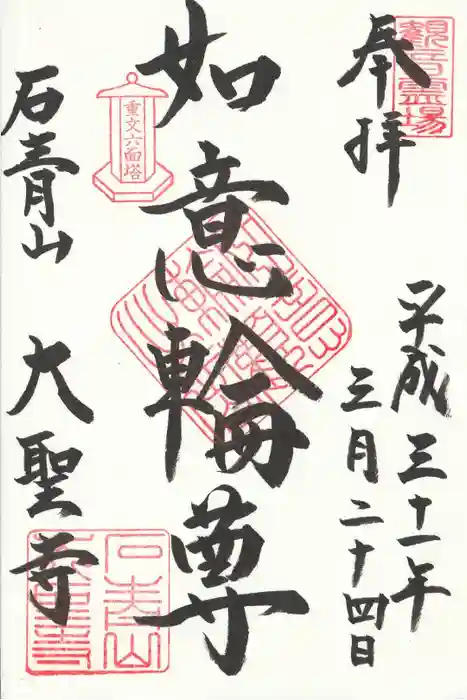 観音霊場
奉拝
平成三十一年
三月二十四日
如意輪尊
重文六面塔
石青山
大聖寺
石青山
大聖寺